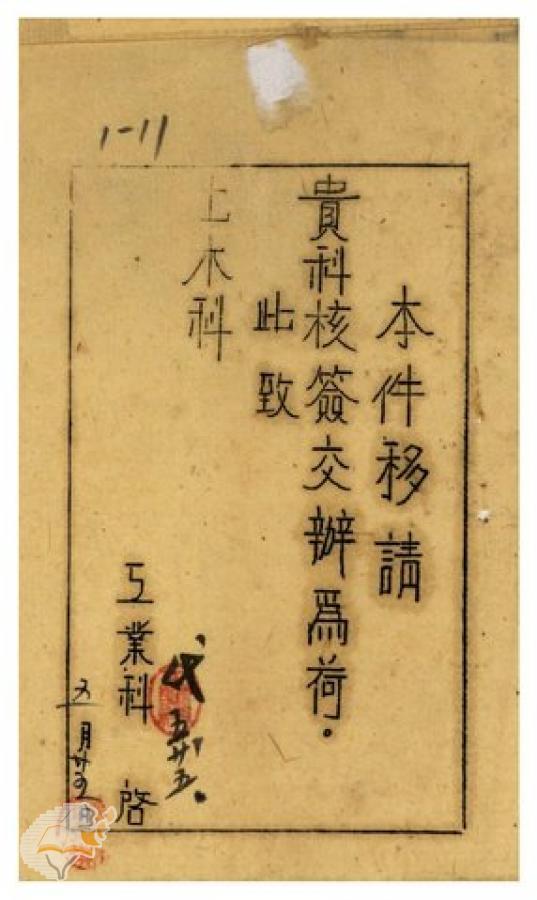 1-11
本件移請
貴科核簽交辦爲荷.
此致
土木科
工業科 啓
五廿五.
五月廿五